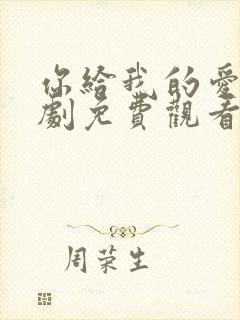 你給我的愛
劇免費觀看
周荣生